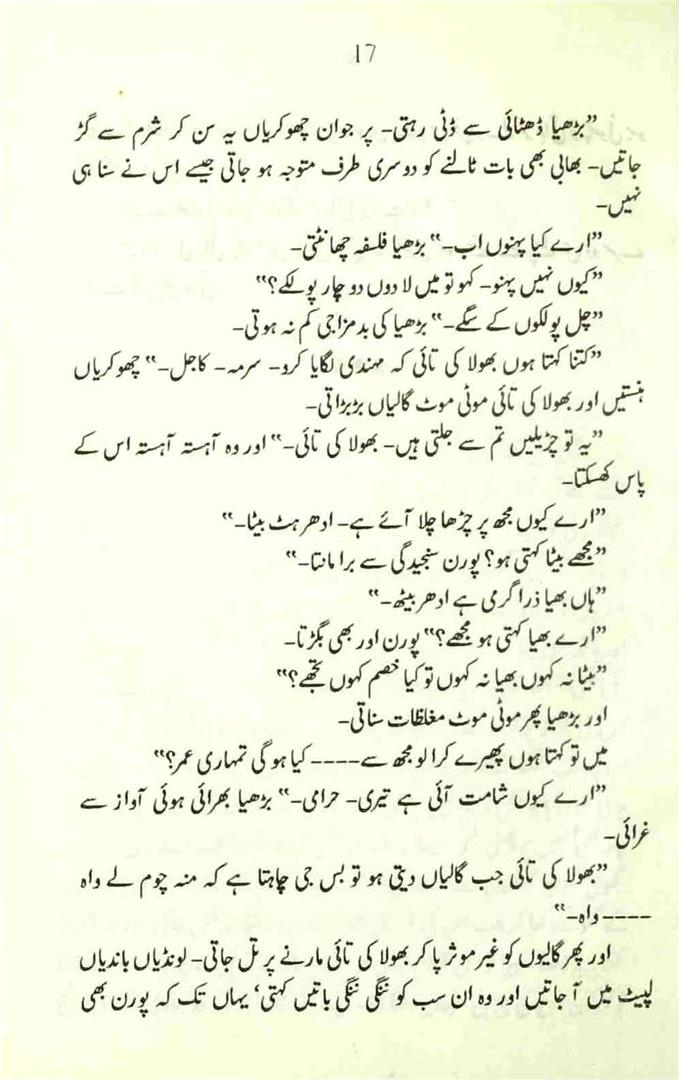 17
”بڑھیا ڈھٹائی سے ڈٹی رہتی۔ پر جوان چھوکریاں یہ سن کر شرم سے گڑ
جاتیں۔ بھابی بھی بات ٹالنے کو دوسری طرف متوجہ ہو جاتی جیسے اس نے سنا ہی
نہیں۔
”ارے کیا پہنوں اب۔“ بڑھیا فلسفہ چھانٹتی۔
”کیوں نہیں پہنو۔ کہو تو میں لا دوں دو چار پولکے؟“
”چل پولکوں کے سگے۔“ بڑھیا کی بدمزاجی کم نہ ہوتی۔
”کتنا کہتا ہوں بھولا کی تائی کہ مہندی لگایا کرو۔ سرمہ۔ کاجل۔“ چھوکریاں
ہنستیں اور بھولا کی تائی موٹی موٹ گالیاں بڑبڑاتی۔
”یہ تو چڑیلیں تم سے جلتی ہیں۔ بھولا کی تائی۔“ اور وہ آہستہ آہستہ اس کے
پاس کھسکتا۔
”ارے کیوں مجھ پر چڑھا چلا آئے ہے۔ ادھر ہٹ بیٹا۔“
”مجھے بیٹا کہتی ہو؟ پورن سنجیدگی سے برا مانتا۔“
”ہاں بھیا ذرا گرمی ہے ادھر بیٹھ۔“
”ارے بھیا کہتی ہو مجھے؟“ پورن اور بھی بگڑتا۔
”بیٹا نہ کہوں بھیا نہ کہوں تو کیا خصم کہوں تجھے؟“
اور بڑھیا پھر موٹی موٹ مغلظات سناتی۔
میں تو کہتا ہوں پھیرے کرا لو مجھ سے---- کیا ہو گی تمہاری عمر؟“
”ارے کیوں شامت آئی ہے تیری۔ حرامی۔“ بڑھیا بھرائی ہوئی آواز سے
غرائی۔
”بھولا کی تائی جب گالیاں دیتی ہو تو بس جی چاہتا ہے کہ منہ چوم لے واہ
---- واہ۔“
اور پھر گالیوں کو غیر موثر پا کر بھولا کی تائی مارنے پر تل جاتی۔ لونڈیاں باندیاں
لپیٹ میں آ جاتیں اور وہ ان سب کو ننگی ننگی باتیں کہتی‘ یہاں تک کہ پورن بھی